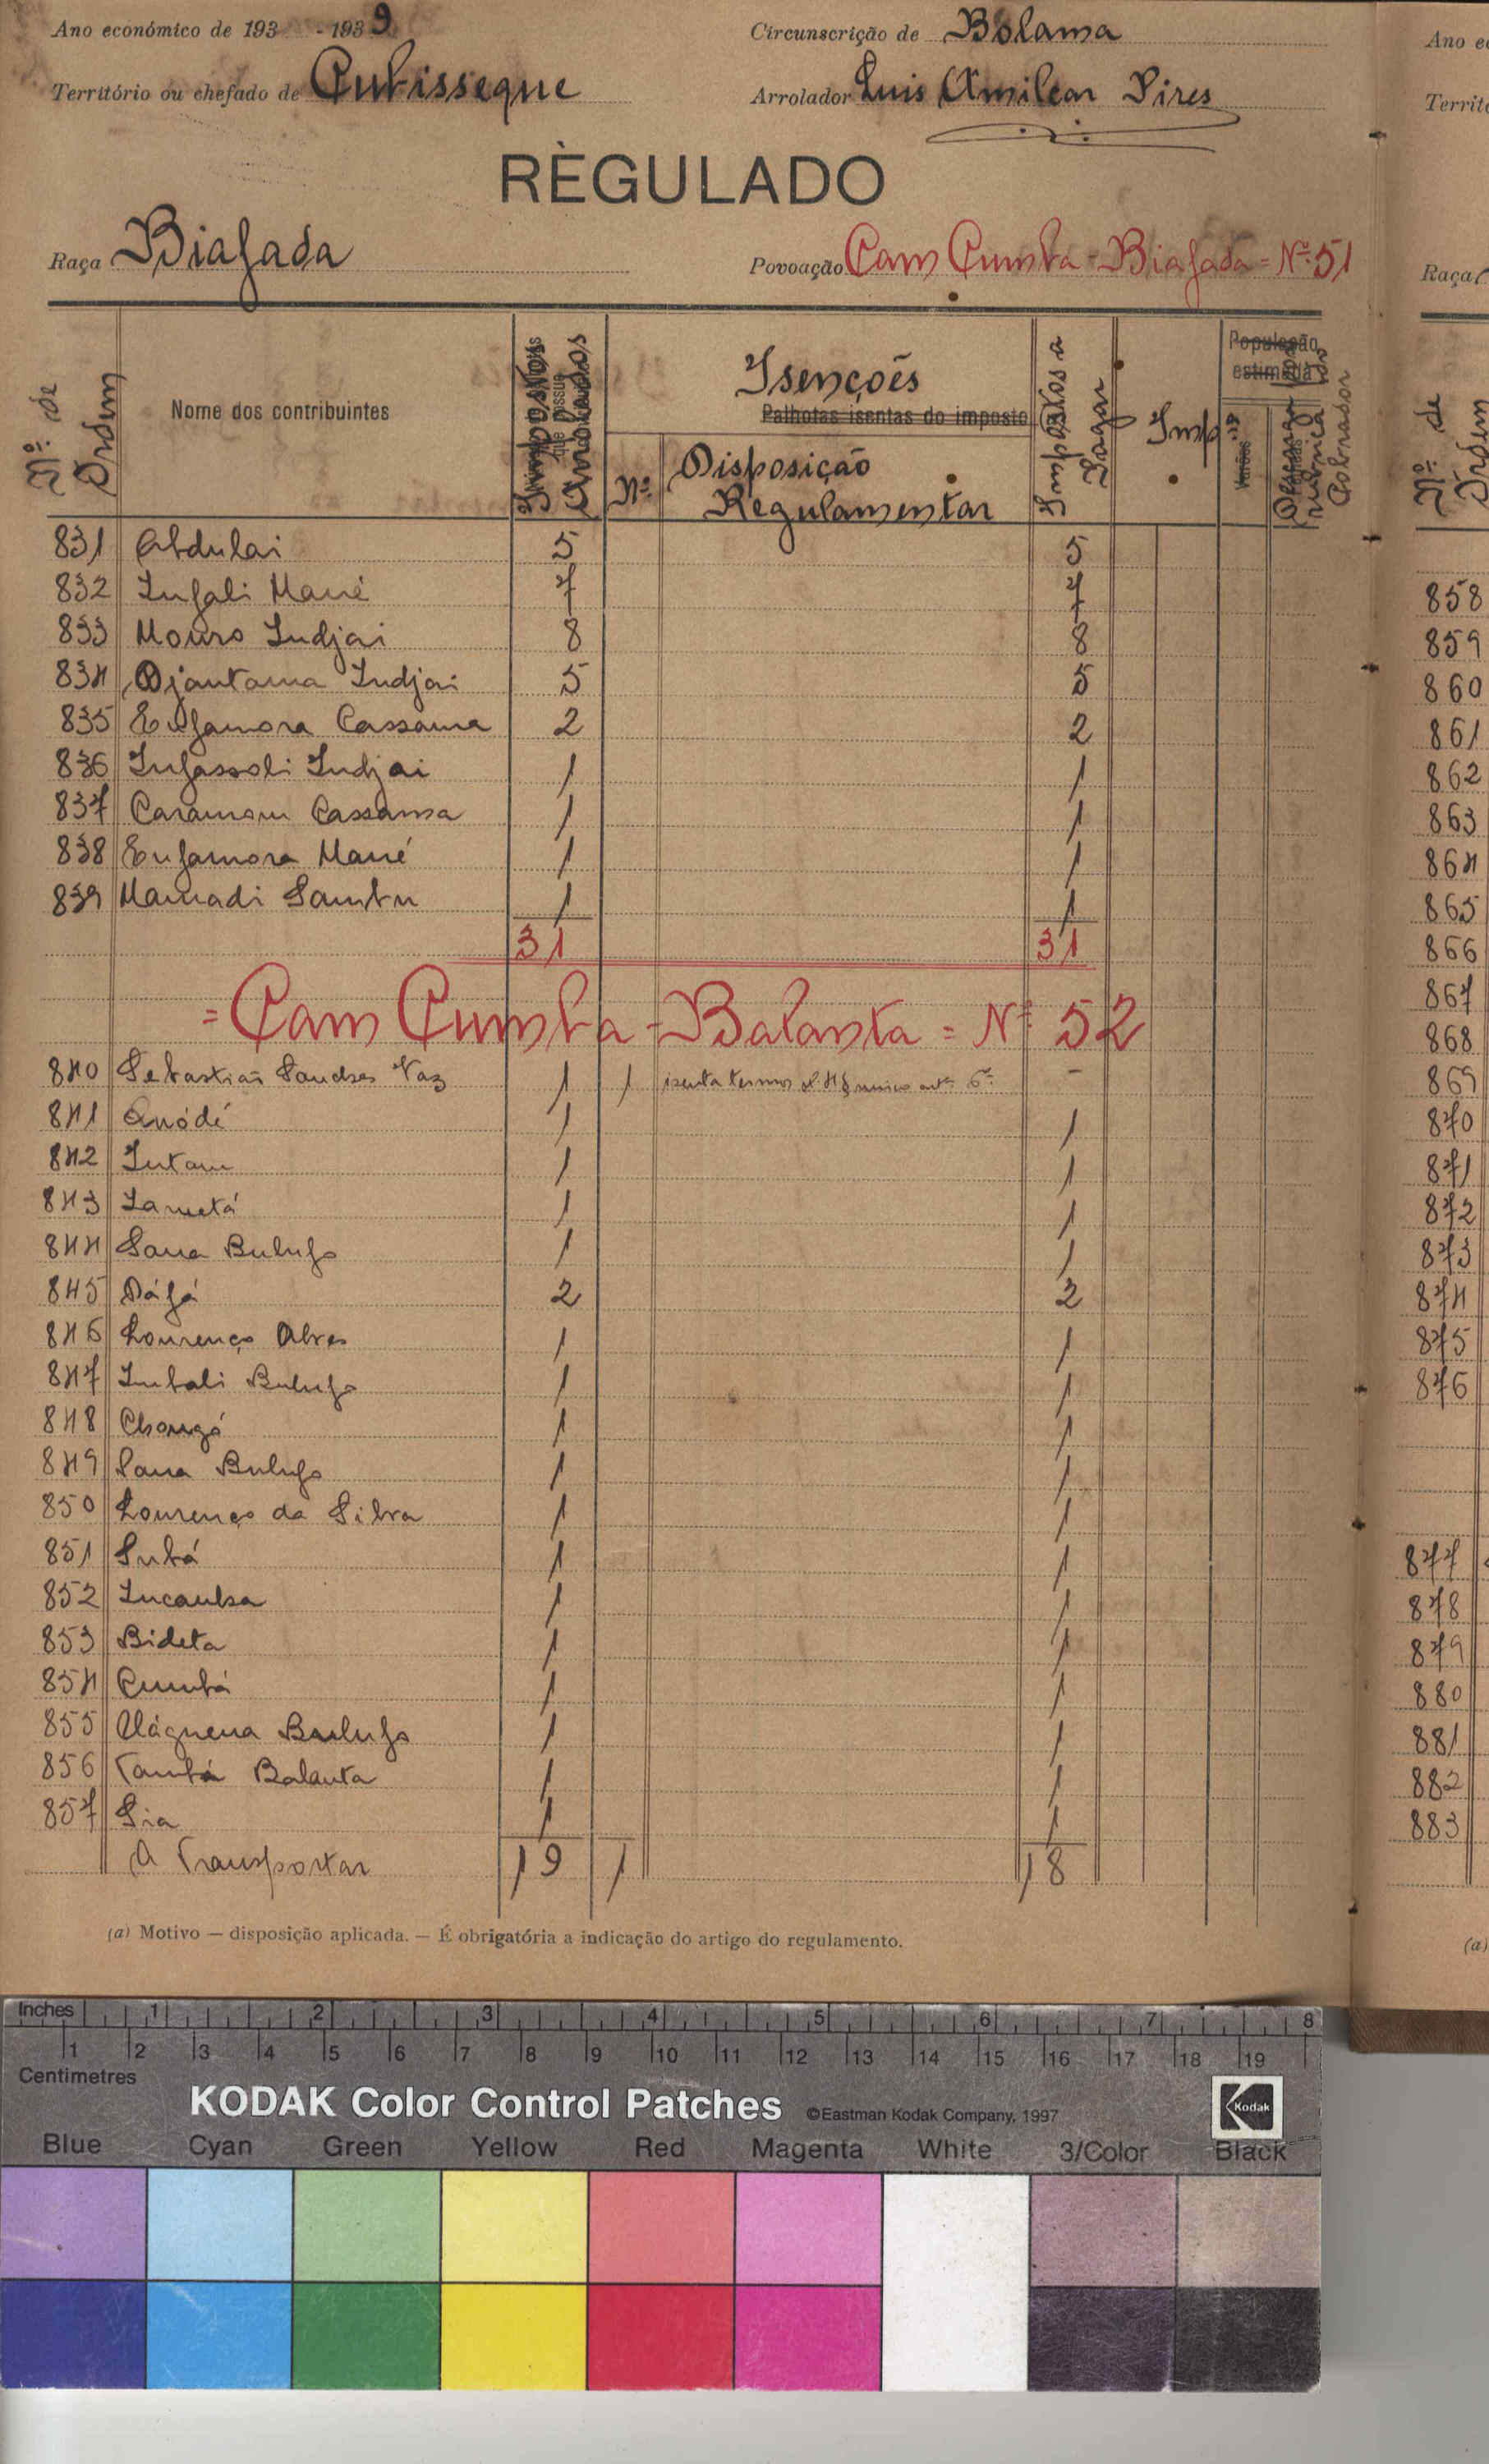 Ano económico de 193 - 1939
Circunscrição de Bolama
Território ou chefado de Cubisseque
Arrolador Luis Amilcar Pires
RÈGULADO
Raça Biafada
Povoação Cam Cumba - Biafada = Nº 51
Nº de Ordem
Nome dos contribuintes
Impostos Arrolados
Isenções
Palhotas isentas do imposto
Nº
Disposição Regulamentar
Impostos a Pagar
Imp
População estimada
Varões
rubrica do Cobrador
831 Abdulai 5 5
832 Infali Mané 7 7
833 Mouro Indjai 8 8
834 Djantama Indjai 5 5
835 Enfamora Cassama 2 2
836 Infassoli Indjai 1 1
837 Caramom Cassama 1 1
838 Enfamora Mané 1 1
839 Mamadi Sambu 1 1
31 31
= Cam Cumba - Balanta = Nº 52
840 Sebastião Sanches Vaz 1 1 isento termos nº 4 § unico artº 6º -
841 Anódé 1 1
842 Intam 1 1
843 Lametá 1 1
844 Sana Bulufo 1 1
845 Dáfá 2 2
846 Lourenço Alves 1 1
847 Imbali Bulufo 1 1
848 Chongó 1 1
849 Sana Bulufo 1 1
850 Lourenço da Silva 1 1
851 Subá 1 1
852 Incamba 1 1
853 Bideta 1 1
854 Cumbá 1 1
855 Uáguena Bulufo 1 1
856 Tambá Balanta 1 1
857 Sia 1 1
A Transportar 19 1 18
(a) Motivo — disposição aplicada. — É obrigatória a indicação do artigo do regulamento.
Ano e
Territó
Raça
Nº de Ordem
858
859
860
861
862
863
864
865
866
867
868
869
870
871
872
873
874
875
876
877
878
879
880
881
882
883
(a)
Inches 1 2 3 4 5 6 7 8
1 2 3 4 5 6 7 8 9 10 11 12 13 14 15 16 17 18 19
Centimetres
KODAK Color Control Patches ©Eastman Kodak Company, 1997 Kodak
Blue Cyan Green Yellow Red Magenta White 3/Color Black